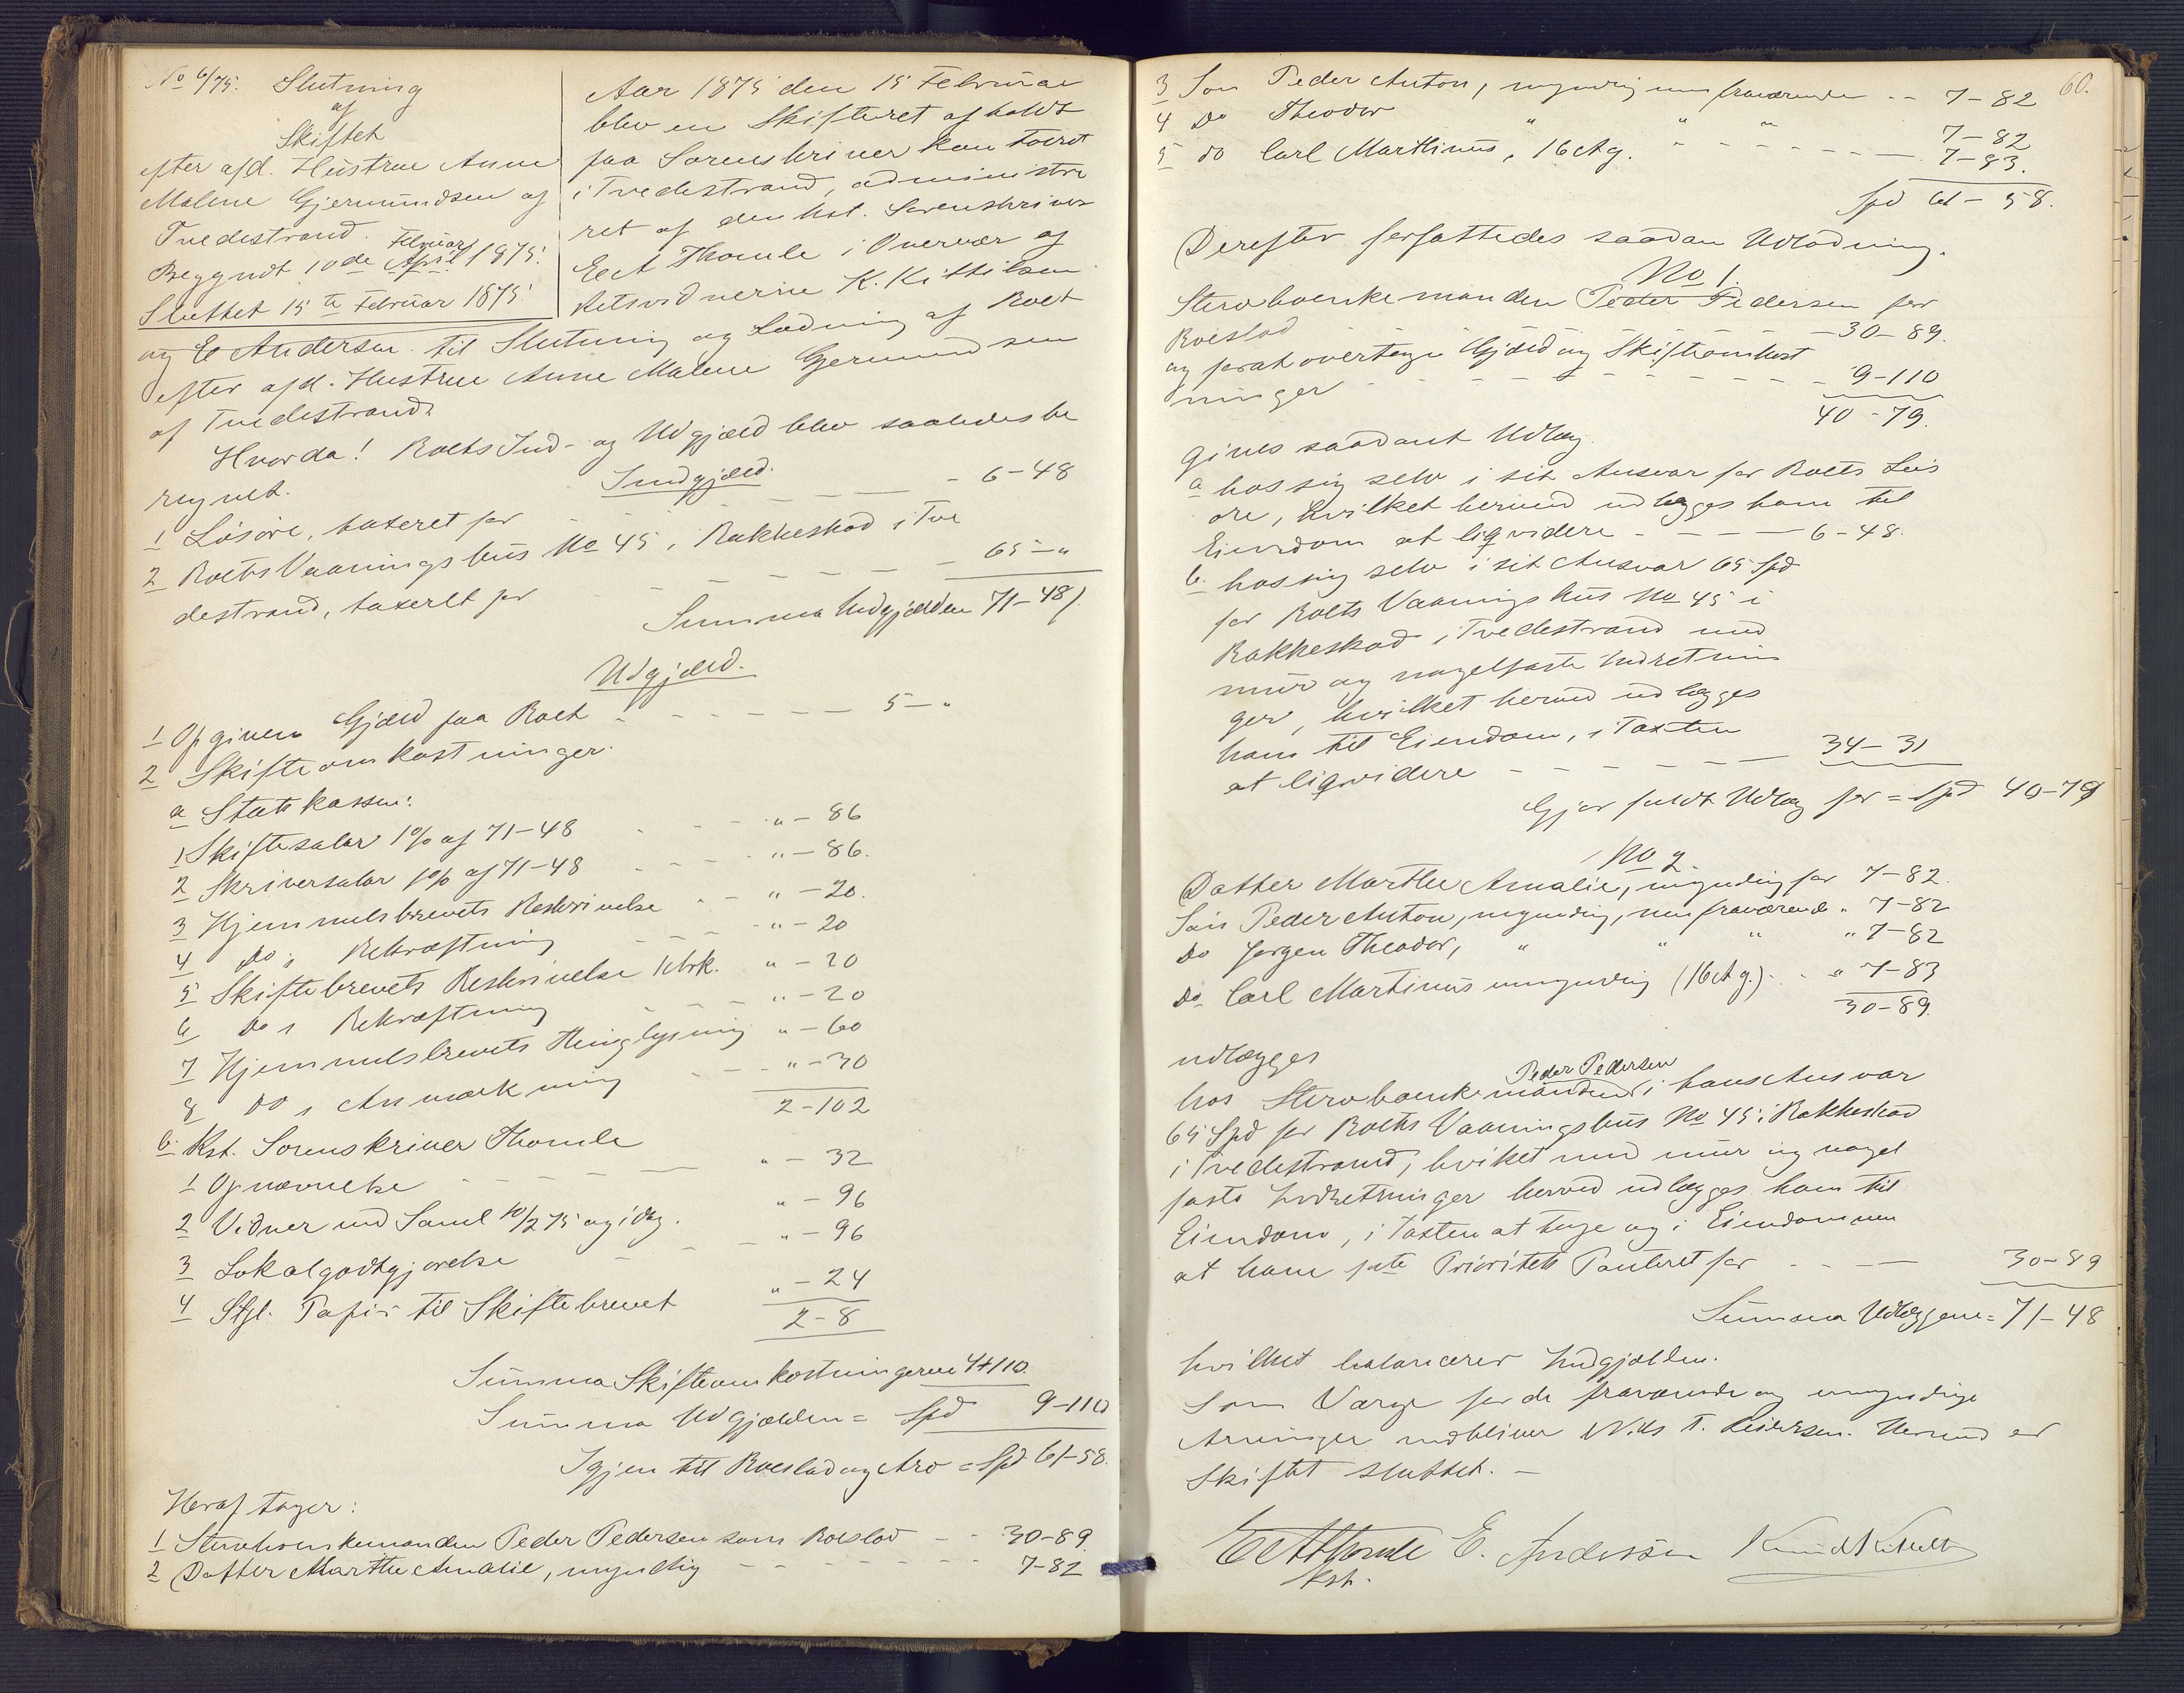 No 6/75. Slutning
af
Skiftet
efter afd. Hustrue Anne
Malene Gjermundsen af
Tvedestrand.
Begyndt 10de Februar April 1875.
Sluttet 15te Februar 1875
Aar 1875 den 15 Februar
blev en Skifteret afholdt
paa Sorenskriver kontoret
i Tvedestrand, administre
ret af den kst. Sorenskriver
E A Thomle i Overvær af
Retsvidnerne K. Kittilsen
og E Andersen til Slutning og Lodning af Boet
efter afd. Hustrue Anne Malene Gjermundsen
af Tvedestrand.
Hvorda! Boets Ind- og Udgjæld blev saaledes be
regnet.
Indgjæld.
1 Løsøre, taxeret for - - - 6-48
2 Boets Vaaningshus No 45, Bakkeskad i Tve
destrand, taxeret for - - - 65-"
Summa Indgjælden 71-48/.
Udgjæld.
1 Opgiven Gjæld paa Boet - - - 5-"
2 Skifteomkostninger.
a Statskassen:
1 Skiftesalar 1% af 71-48 - - - "-86
2 Skriversalar 1% af 71-48 - - - "-86.
3 Hjemmelsbrevets Beskrivelse - - "-20.
4 Do, Bekræftning - - - "-20
5 Skiftebrevets Beskrivelse 1 Ark. "-20
6 Do, Bekræftning - - "-20
7 Hjemmelsbrevets Thinglysning "-60
8 Do, Anmærkning - - - "-30
2-102
b. Kst. Sorenskriver Thomle
1 Opnævnelse - - - "-32
2 Vidner ved Saml 10/2 75 og idag. "-96
3 Lokalgodtgjørelse - - "-96
4 Stpl. Papir til Skiftebrevet "-24
2-8
Summa Skifteomkostningerne 4-110.
Summa Udgjælden = Spd 9-110
Igjen til Boeslod og Arv = Spd 61-58.
Heraf tager:
1 Stervboenkemanden Peder Pedersen som Boeslod - - 30-89.
2 Datter Marthe Amalie, myndig - - - 7-82
60.
3 Søn Peder Anton, myndig men fraværende - - 7-82
4 Do Theodor " " " 7-82
5 do Carl Marthinus, 16 Ag. - - - 7-83.
Spd 61-58.
Derefter forfattedes saadan Udlodning.
No 1.
Stervboenkemanden Peder Pedersen for
Boeslod - - - 30-89.
og forat overtage Gjæld og Skifteomkost
ninger - - - 9-110
40-79.
gives saadant Udlæg.
a hos sig selv i sit Ansvar for Boets Løs
øre, hvilket herved udlægges ham til
Eiendom at liqvidere - - - 6-48.
b. hos sig selv i sit Ansvar 65 Spd
for Boets Vaaningshus No 45 i
Bakkeskad i Tvedestrand med
mur og nagelfaste Indretnin
ger, hvilket herved udlægges
ham til Eiendom, i Taxten
at liqvidere - - - 34-31
Gjør fuldt Udlæg for = Spd 40-79
No 2.
Datter Marthe Amalie, myndig for 7-82.
Søn Peder Anton, myndig, men fraværende " 7-82
Do Jørgen Theodor, " " " " 7-82
Do Carl Martinus umyndig (16 Ag.) - - " 7-83
30-89.
udlægges
hos Stervboenkemanden Peder Pedersen i hans Ansvar
65 Spd for Boets Vaaningshus No 45 i Bakkeskad
i Tvedestrand, hvilket med mur og nagel
faste Indretninger herved udlægges ham til
Eiendom, i Taxten at tage og i Eiendommen
at have 1ste Prioritets Panteret for - - - 30-89
Summa Udlæggene = 71-48
hvilket balancerer Indgjælden.
Som Værge for de fraværende og umyndige
Arvinger udbliver Nils T. Pedersen. Herved er
Skiftet sluttet. -
E A Thomle E. Andersen Knud Kittilsen
kst.